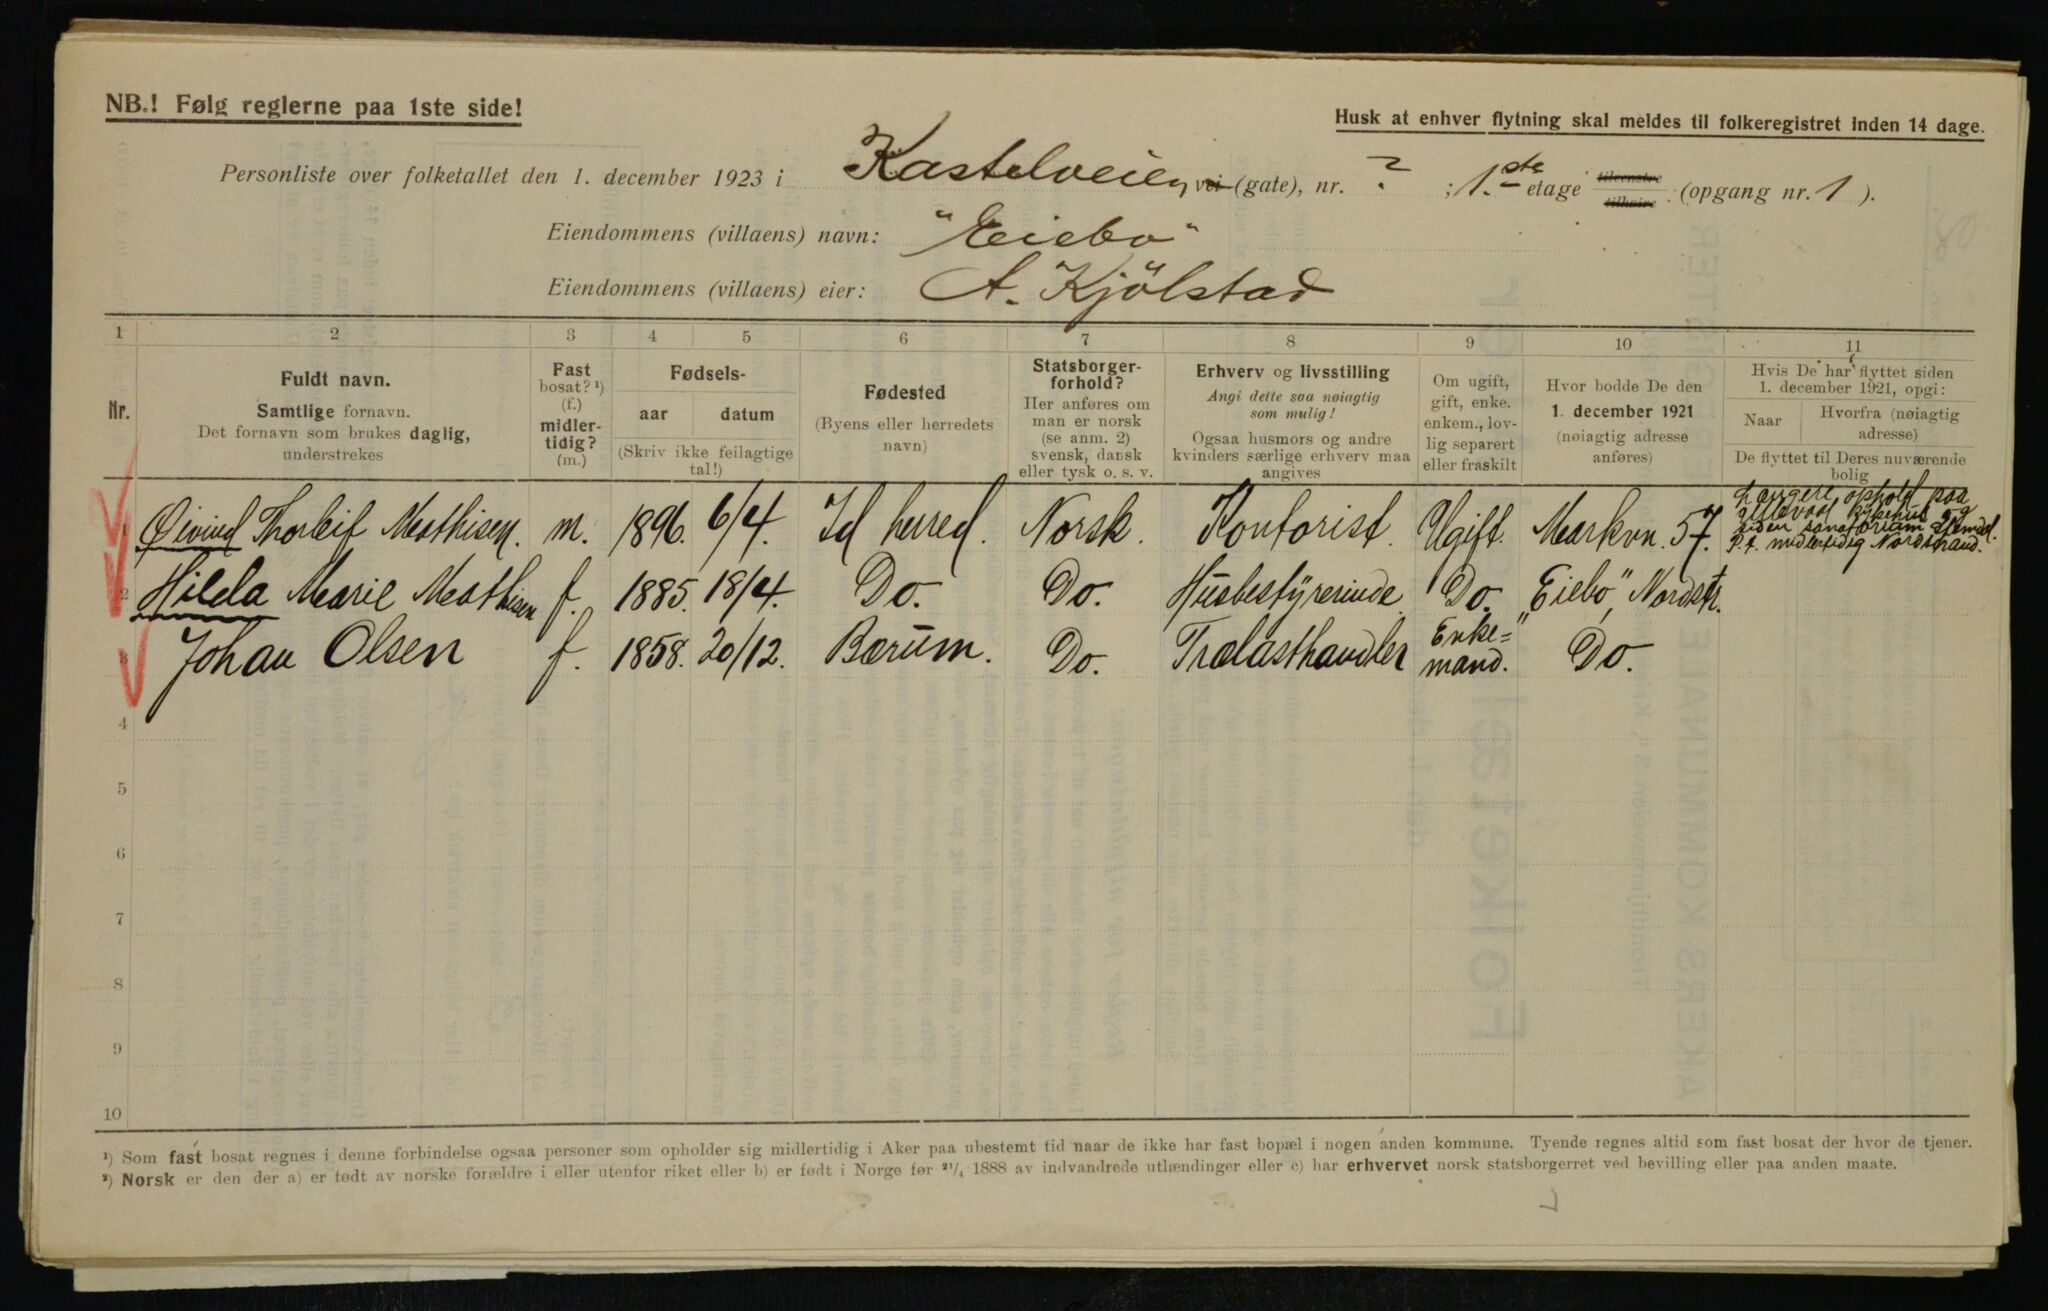 NB.! Følg reglerne paa 1ste side!
Husk at enhver flytning skal meldes til folkeregistret inden 14 dage.
Personliste over folketallet den 1. december 1923 i Kastelveien, vei (gate), nr. ? ; 1.ste etage tilvenstre tilhøire (opgang nr. 1 ).
Eiendommens (villaens) navn: "Eiebo"
Eiendommens (villaens) eier: A. Kjölstad
1 2 3 4 5 6 7 8 9 10 11
Nr.
Fuldt navn.
Samtlige fornavn.
Det fornavn som brukes daglig,
understrekes
Fast
bosat? ¹)
(f.)
midler-
tidig?
(m.)
Fødsels-
aar datum
(Skriv ikke feilagtige
tal!)
Fødested
(Byens eller herredets
navn)
Statsborger-
forhold?
Her anføres om
man er norsk
(se anm. 2)
svensk, dansk
eller tysk o. s. v.
Erhverv og livsstilling
Angi dette saa nøiagtig
som mulig!
Ogsaa husmors og andre
kvinders særlige erhverv maa
angives
Om ugift,
gift, enke.
enkem., lov-
lig separert
eller fraskilt
Hvor bodde De den
1. december 1921
(nøiagtig adresse
anføres)
Hvis De har flyttet siden
1. december 1921, opgi:
Naar
Hvorfra (nøiagtig
adresse)
De flyttet til Deres nuværende
bolig
1 Øivind Thorleif Mathisen. m. 1896. 6/4. Id herred. Norsk. Kontorist. Ugift. Markvn. 57.
Længere ophold paa
Ullevaal sykehus og
siden sanatorium
P. t. midlertidig Nordstrand.
2 Hilda Marie Mathisen f. 1885. 18/4. Do. Do. Husbestÿrerinde. Do. "Eiebo", Nordstr.
3 Johan Olsen f. 1858. 20/12. Bærum. Do. Trælasthandler Enke=
mand. Do.
4
5
6
7
8
9
10
¹) Som fast bosat regnes i denne forbindelse ogsaa personer som opholder sig midlertidig i Aker paa ubestemt tid naar de ikke har fast bopæl i nogen anden kommune. Tyende regnes altid som fast bosat der hvor de tjener.
²) Norsk er den der a) er født av norske forældre i eller utenfor riket eller b) er født i Norge før ²¹/₄ 1888 av indvandrede utlændinger eller c) har erhvervet norsk statsborgerret ved bevilling eller paa anden maate.